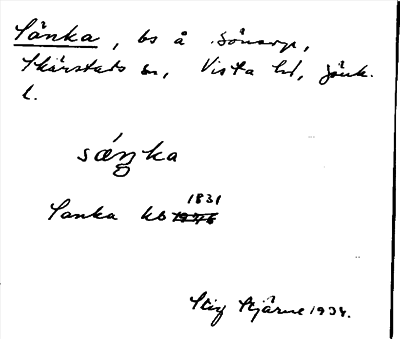 Sänka, bs å Sönarp,
Skärstads sn, Vista hd, Jönk.
l.
sáŋka
Sanka kb 1831
Stig Stjärne 1934.